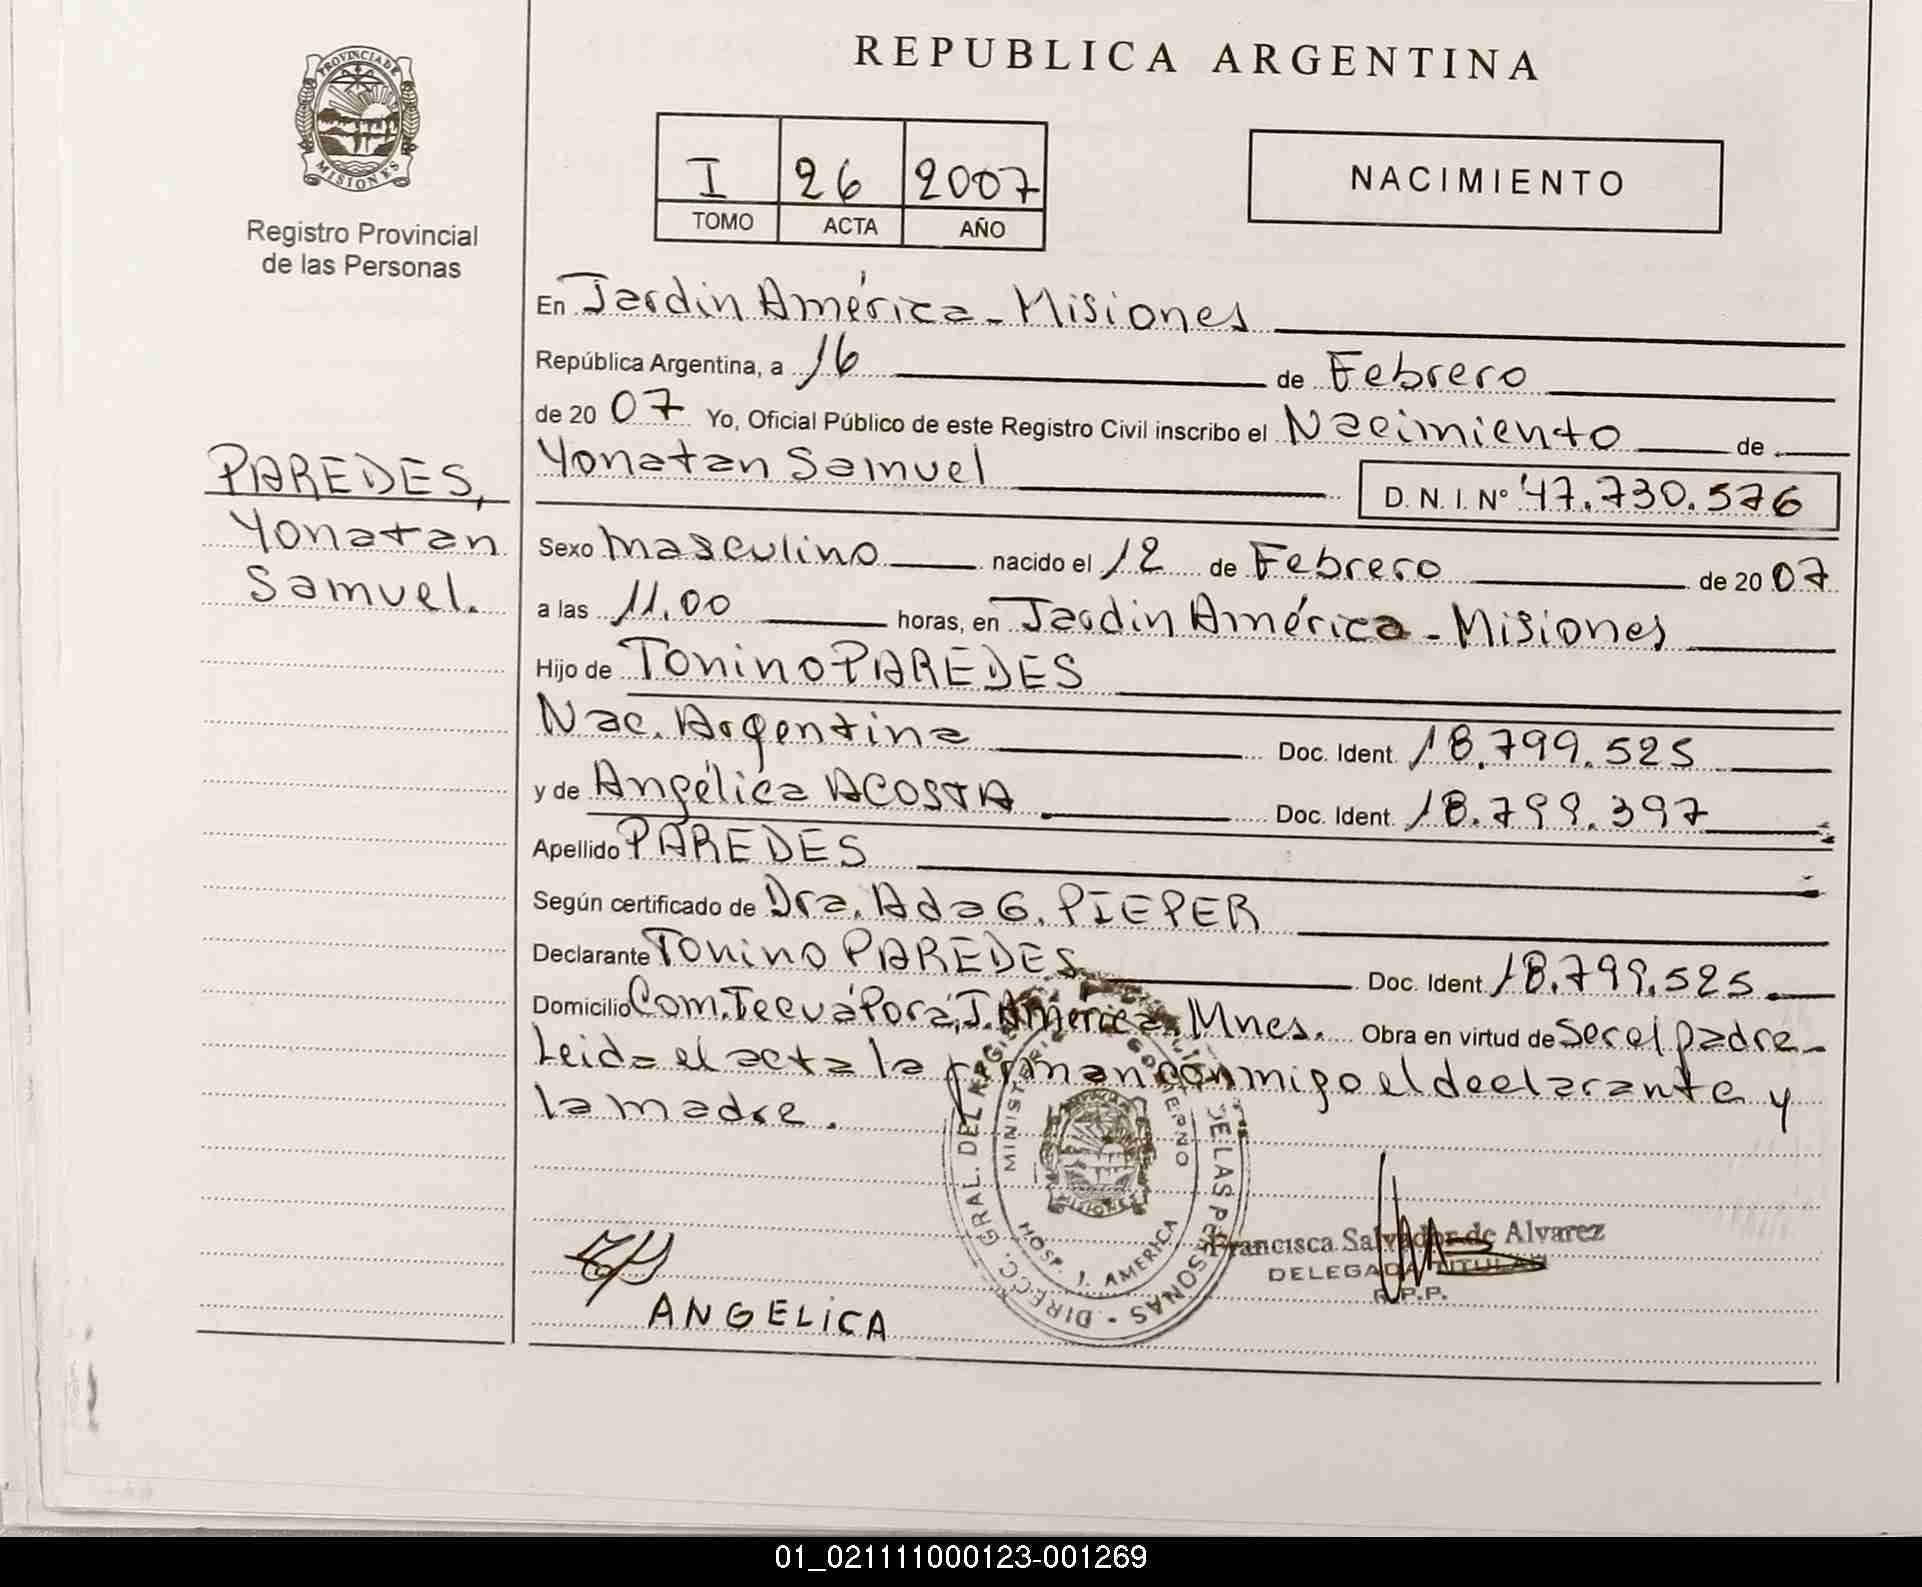 PROVINCIA DE
MISIONES
Registro Provincial
de las Personas
PAREDES,
Yonatan
Samuel.
REPUBLICA ARGENTINA
I 26 2007
TOMO ACTA AÑO
NACIMIENTO
En Jardin América - Misiones
República Argentina, a 16 de Febrero
de 20 07 Yo, Oficial Público de este Registro Civil inscribo el Nacimiento de
Yonatan Samuel D. N. I. Nº 47.730.576
Sexo masculino nacido el 12 de Febrero de 20 07
a las 11.00 horas, en Jardin América - Misiones
Hijo de Tonino PAREDES
Nac. Argentina Doc. Ident. 18.799.525
y de Angélica ACOSTA Doc. Ident. 18.799.397
Apellido PAREDES
Según certificado de Dra. Ada G. PIEPER
Declarante Tonino PAREDES Doc. Ident 18.799.525
Domicilio Com. Tecuá Porá, J. América. Mnes. Obra en virtud de Ser el padre -
Leida el acta la firman conmigo el declarante y
la madre.
DIRECC. GRAL. DEL REGISTRO DE LAS PERSONAS
MINISTERIO GOBIERNO
MISIONES
HOSP. J. AMERICA
Francisca Salvador de Alvarez
DELEGADA TITULAR
R.P.P.
ANGELiCA
01_021111000123-001269